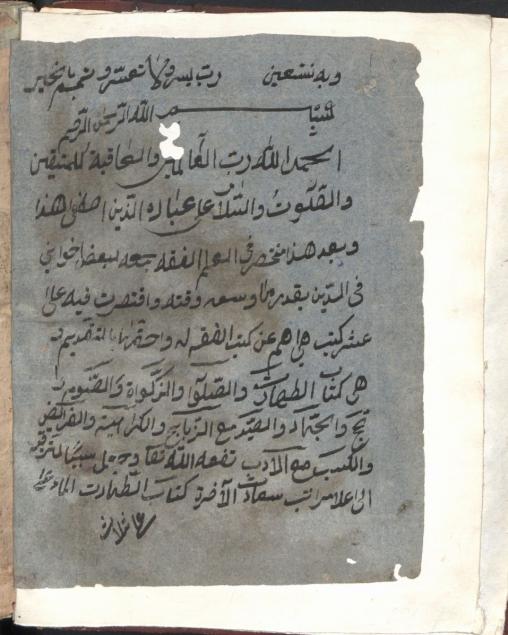 وبه نستعين رب يسر ولا تعسر وتمم بالخير
بسم الله الرحمن الرحيم
الحمد الله رب العالمين والعاقبة للمتقين
والصلوت والسلام على عباده الذين اصطفى هذا
وبعد هذا مختصر في العلم الفقه جمعه لبعض اخواني
في الدين بقدر ما وسعه وقته واقتصرت فيه على
عشر كتب هي اهم عن كتب الفقه له واحقها بالتقديم
هي كتاب الطهارت والصلوة والزكواة والصوم
حج والجهاد والصيد مع الذبايح والكراهية والفرائض
والكسب مع الادب نفعه الله تعا وجعل سببا لترقيه
الى اعلا مراتب سعادت الآخرة كتاب الطهارت الماء
ثلاث